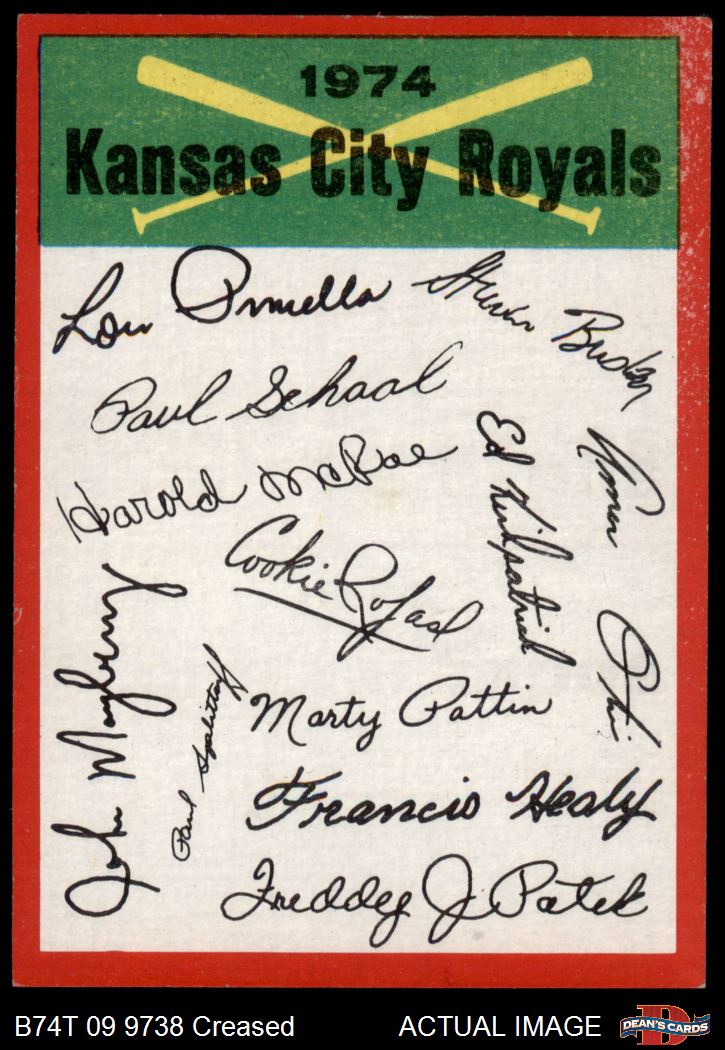 1974
Kansas City Royals
Lou Piniella
Steven Busby
Paul Schaal
Harold McRae
Ed Kirkpatrick
Amos Otis
Cookie Rojas
John Mayberry
Paul Splittorff
Marty Pattin
Francis Healy
Freddy J Patek
B74T 09 9738 Creased
ACTUAL IMAGE
D
DEAN'S CARDS